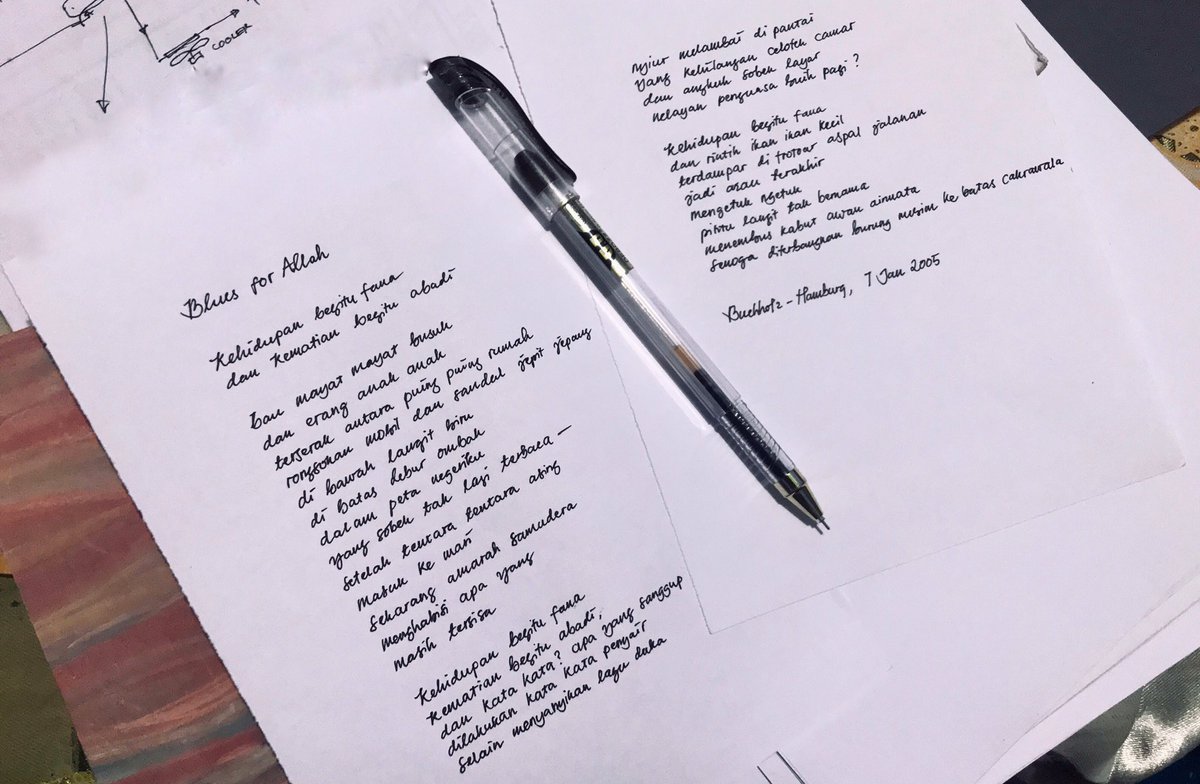 COOLER
Blues for Allah
Kehidupan begitu fana
dan kematian begitu abadi
bau mayat mayat busuk
dan erang anak anak
terserak antara puing puing rumah
rongsokan mobil dan sandal jepit jepang
di bawah langit biru
di batas debur ombak
dalam peta negeriku
yang sobek tak lagi terbaca —
setelah tentara tentara asing
masuk ke mari
sekarang amarah samudera
menghabisi apa yang
masih tersisa
Kehidupan begitu fana
kematian begitu abadi,
dan kata kata? apa yang sanggup
dilakukan kata kata penyair
selain menyanyikan lagu duka
nyiur melambai di pantai
yang kehilangan celoteh camar
dan angkuh sobek layar
nelayan penguasa buih pagi?
Kehidupan begitu fana
dan rintih ikan ikan kecil
terdampar di trotoar aspal jalanan
jadi azan terakhir
mengetuk ngetuk
pintu langit tak bernama
menembus kabut awan airmata
semoga diterbangkan burung musim ke batas cakrawala.
Buchholz - Hamburg, 7 Jan 2005